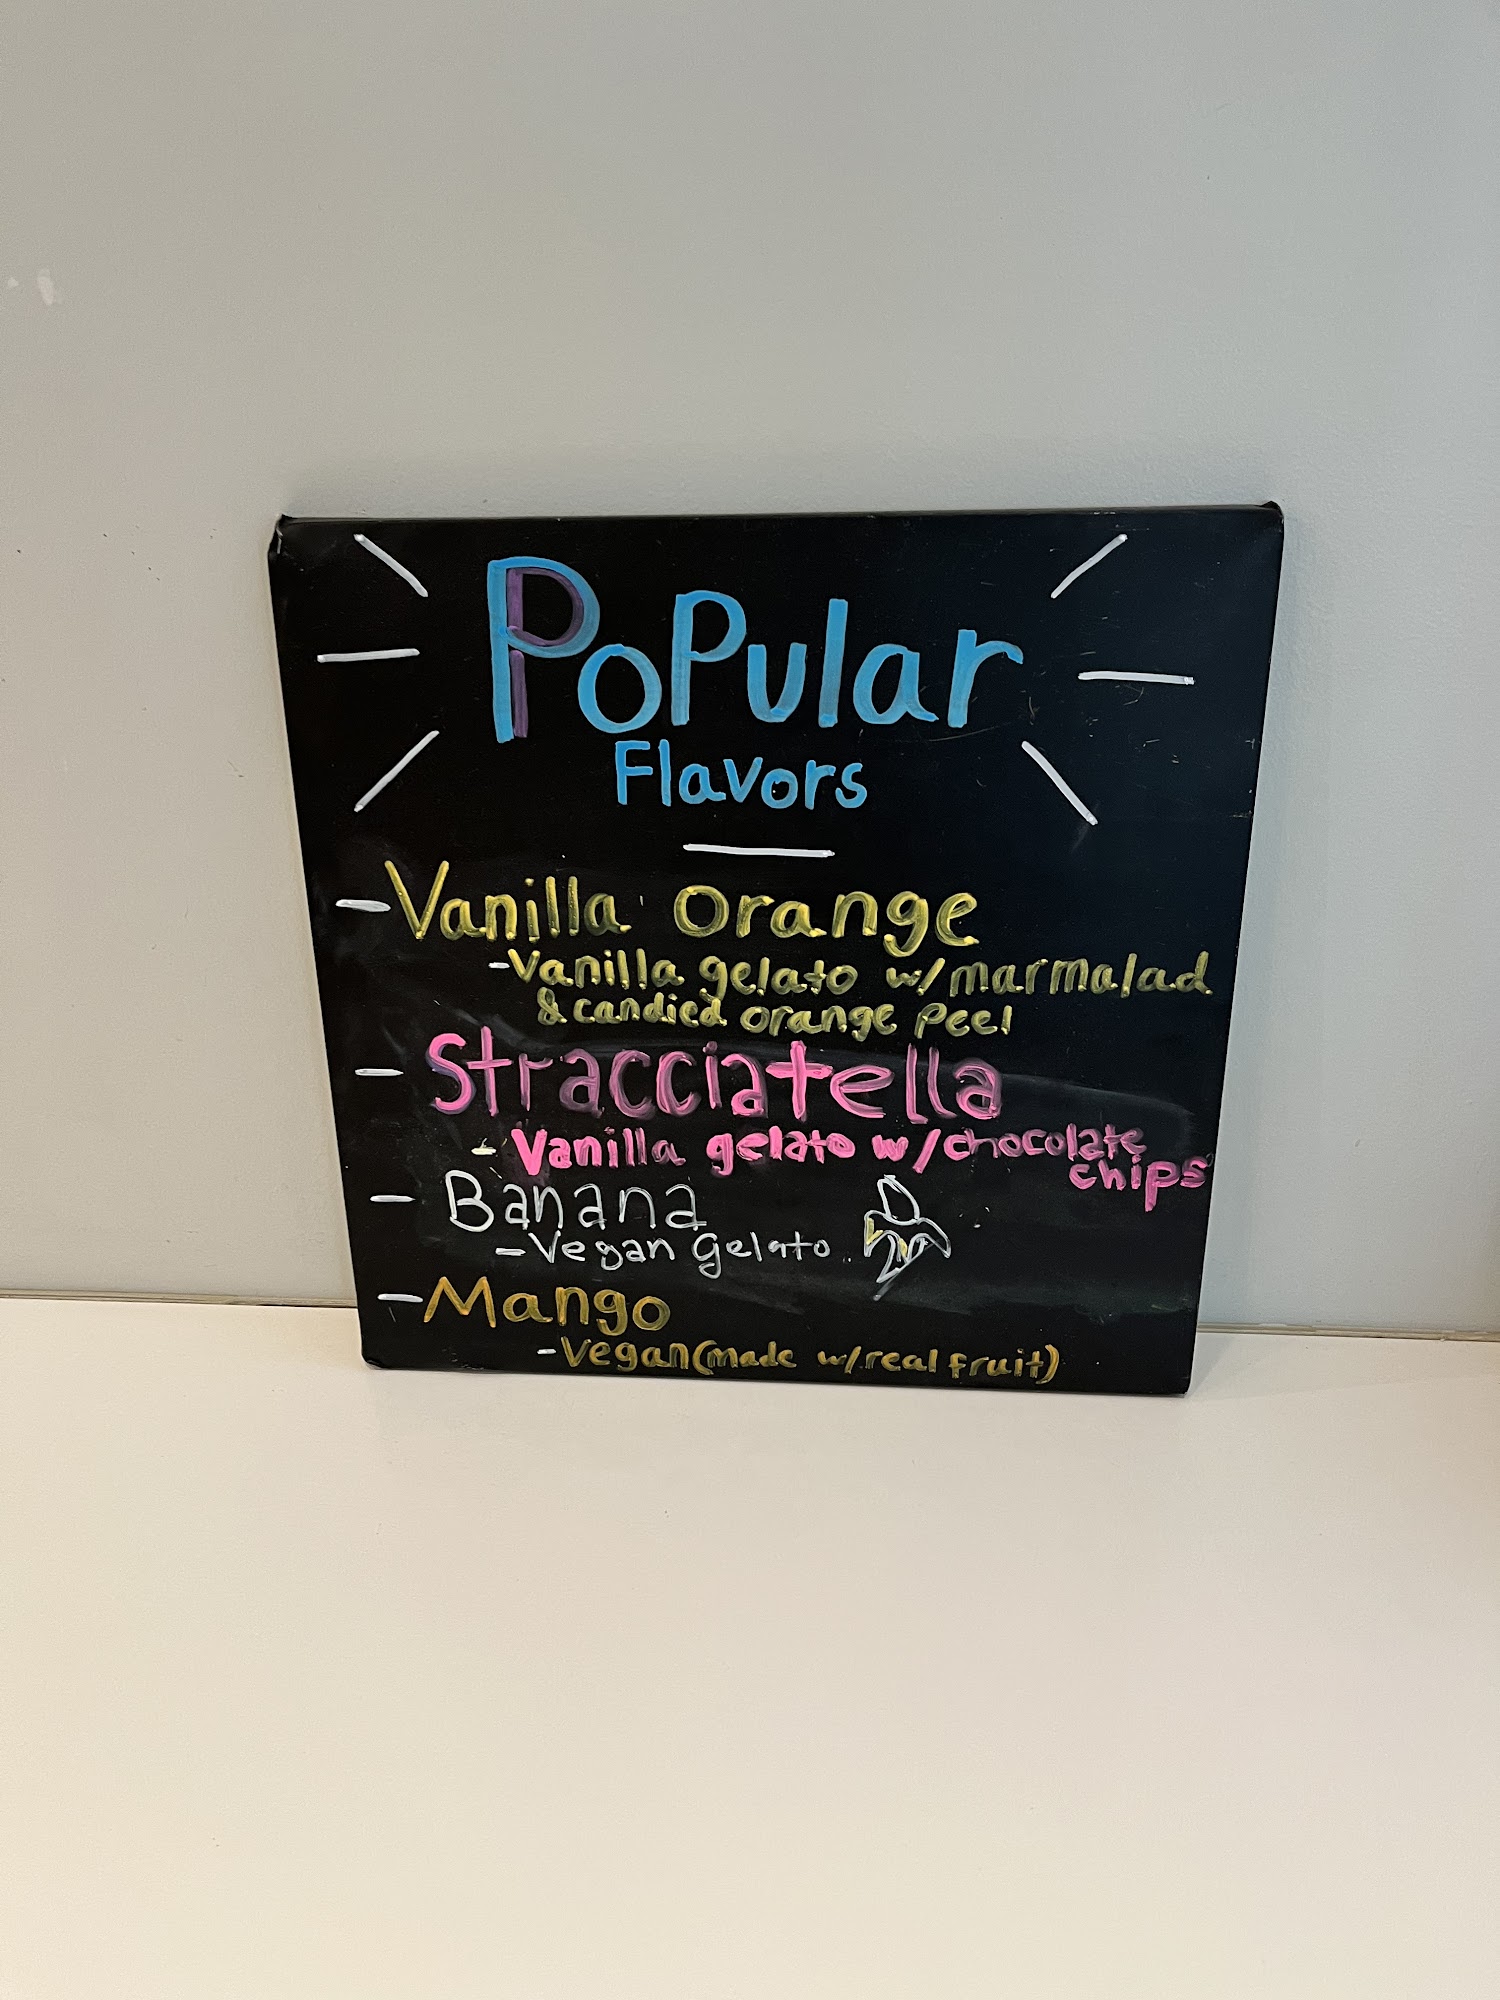 Popular
Flavors
- Vanilla Orange
- Vanilla gelato w/ marmalad
& candied orange peel
- Stracciatella
- Vanilla gelato w/ chocolate
chips
- Banana
- Vegan gelato
- Mango
- Vegan (made w/ real fruit)